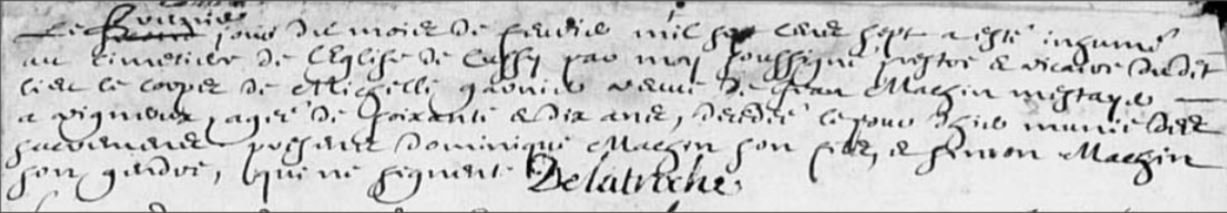 Le huitieme
jour du mois de feuvrier mil sept cens sept a esté inhumé
au cimetiere de l'Eglise de Cussy par moy soussigné prestre & vicaire dudit
lieu le corps de Michelle garnier veuve de Jean Machin mestayer
a vigneux, agée de soixante & dix ans, decedée le jour d'hier munie des
sacremens presens Dominique Machin son fils, & Simon Machin
son gendre, qui ne signent Delatroche